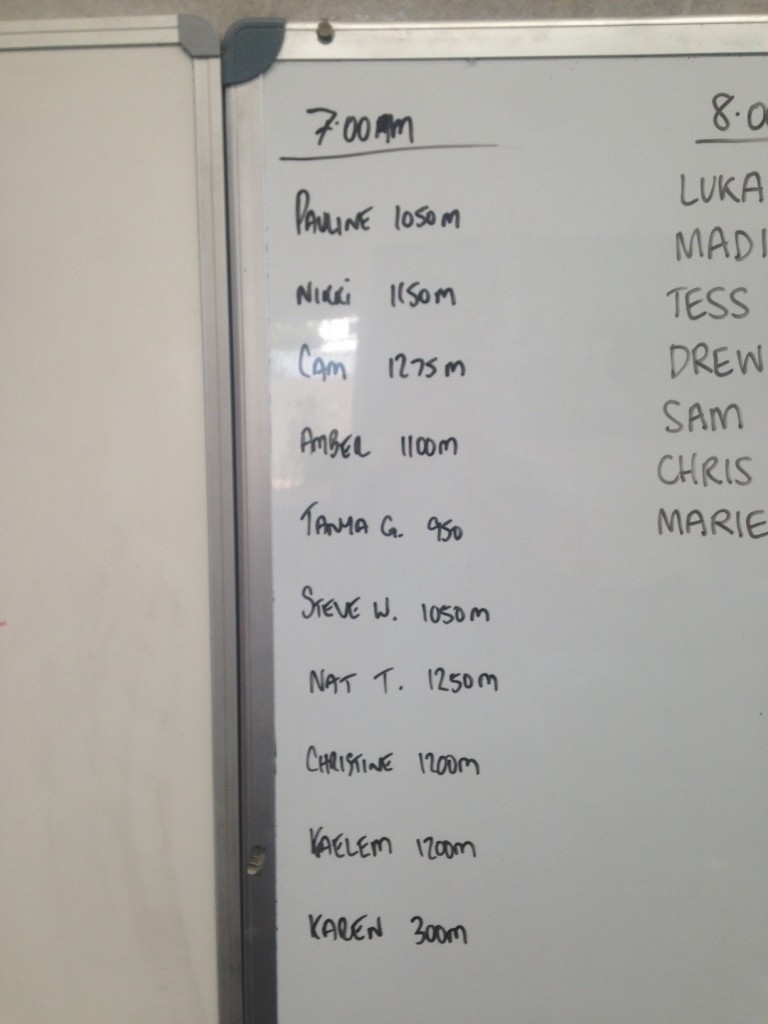 7:00AM
PAULINE 1050M
NIKKI 1150M
CAM 1275M
AMBER 1100M
TANYA G. 950
STEVE W. 1050M
NAT T. 1250M
CHRISTINE 1200M
KAELEM 1200M
KAREN 300M
8:0
LUKA
MADI
TESS
DREW
SAM
CHRIS
MARIE